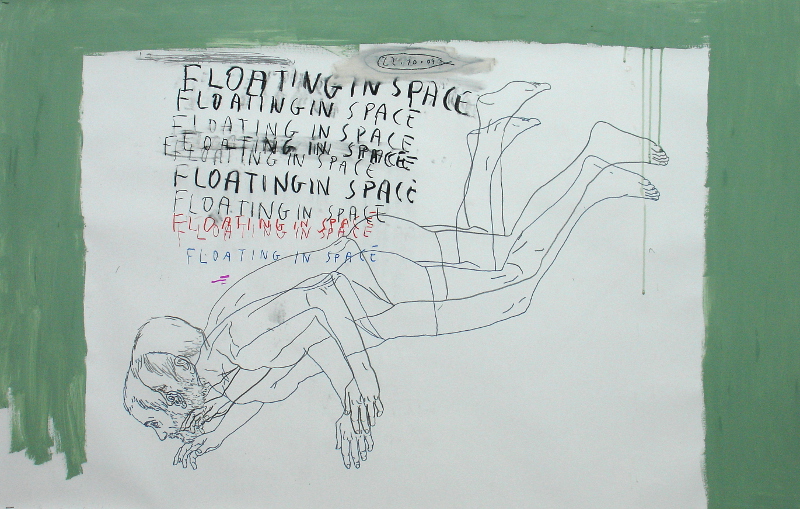 FLOATING IN SPACE
FLOATING IN SPACE
FLOATING IN SPACE
FLOATING IN SPACE
FLOATING IN SPACE
FLOATING IN SPACE
FLOATING IN SPACE
FLOATING IN SPACE
FLOATING IN SPACE
FLOATING IN SPACE